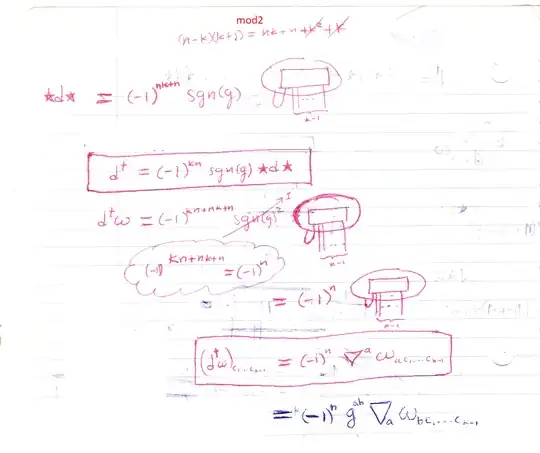 mod2
(n-k)(k+1) = nk+n+k²+k
★d★ = (-1)^{nk+n} sgn(g)
k-1
d† = (-1)^{kn} sgn(g) ★d★
d†ω = (-1)^{kn+nk+n} sgn(g)² 1
k-1
(-1)^{kn+nk+n} = (-1)^n
= (-1)^n
k-1
(d†ω)_{c₁...c_{k-1}} = (-1)^n ∇^a ω_{ac₁...c_{k-1}}
= (-1)^n g^{ab} ∇_a ω_{bc₁...c_{k-1}}